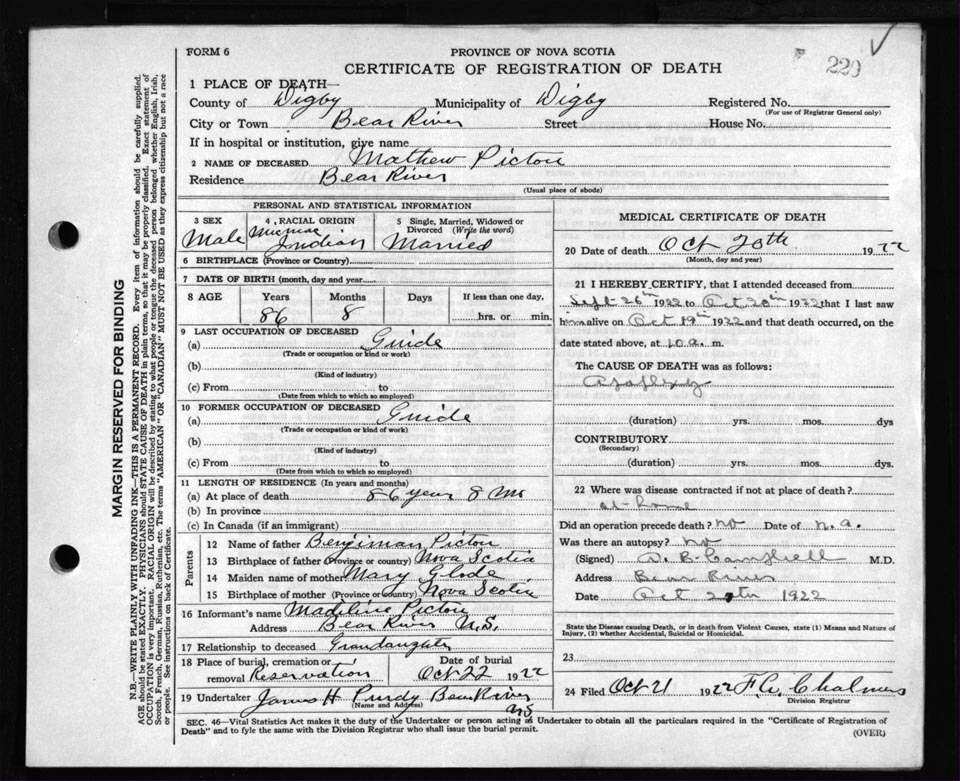 FORM 6
PROVINCE OF NOVA SCOTIA
220
CERTIFICATE OF REGISTRATION OF DEATH
1 PLACE OF DEATH—
County of Digby Municipality of Digby Registered No.
(For use of Registrar General only)
City or Town Bear River Street House No.
If in hospital or institution, give name
2 NAME OF DECEASED Mathew Pictou
Residence Bear River
(Usual place of abode)
PERSONAL AND STATISTICAL INFORMATION
3 SEX 4, RACIAL ORIGIN 5 Single, Married, Widowed or
Divorced (Write the word)
Male Micmac Indian Married
6 BIRTHPLACE (Province or Country)
7 DATE OF BIRTH (month, day and year)
8 AGE Years Months Days If less than one day,
86 8 hrs. or min.
9 LAST OCCUPATION OF DECEASED
(a) Guide
(Trade or occupation or kind or work)
(b)
(Kind of industry)
(c) From to
(Date from which to which so employed)
10 FORMER OCCUPATION OF DECEASED
(a) Guide
(Trade or occupation or kind of work)
(b)
(Kind of industry)
(c) From to
(Date from which to which so employed)
11 LENGTH OF RESIDENCE (In years and months)
(a) At place of death 86 year 8 Mo
(b) In province
(c) In Canada (if an immigrant)
Parents
12 Name of father Benjiman Pictou
13 Birthplace of father (Province or country) Nova Scotia
14 Maiden name of mother Mary Glode
15 Birthplace of mother (Province or Country) Nova Scotia
16 Informant's name Madiline Pictou
Address Bear River N.S.
17 Relationship to deceased Grandaughter
18 Place of burial, cremation or Date of burial
removal Reservation Oct 22 1922
19 Undertaker James H Purdy Bear River
(Name and Address) NS
MEDICAL CERTIFICATE OF DEATH
20 Date of death Oct 20th 1922
(Month, day and year)
21 I HEREBY CERTIFY, that I attended deceased from
Sept 26th 1922 to Oct 20th 1922 that I last saw
him alive on Oct 19th 1922 and that death occurred, on the
date stated above, at 10 a. m.
The CAUSE OF DEATH was as follows:
(duration) yrs. mos. dys
CONTRIBUTORY
(Secondary)
(duration) yrs. mos. dys.
22 Where was disease contracted if not at place of death?
at home
Did an operation precede death? no Date of n.a.
Was there an autopsy? no
(Signed) D. B. Campbell M.D.
Address Bear River
Date Oct 20th 1922
State the Disease causing Death, or in death from Violent Causes, state (1) Means and Nature of
Injury, (2) whether Accidental, Suicidal or Homicidal.
23
24 Filed Oct 21 1922 Chalmers
Division Registrar
SEC. 46—Vital Statistics Act makes it the duty of the Undertaker or person acting as Undertaker to obtain all the particulars required in the "Certificate of Registration of
Death" and to fyle the same with the Division Registrar who shall issue the burial permit.
(OVER)
MARGIN RESERVED FOR BINDING
N.B.—WRITE PLAINLY WITH UNFADING INK—THIS IS A PERMANENT RECORD. Every item of information should be carefully supplied.
AGE should be stated EXACTLY. PHYSICIANS should STATE CAUSE OF DEATH in plain terms, so that it may be properly classified. Exact statement of
OCCUPATION is very important. RACIAL ORIGIN will be described by stating to what people or tongue the deceased person belonged whether English, Irish,
Scotch, French, German, Russian, Ruthenian, etc. The terms "AMERICAN" OR "CANADIAN" MUST NOT BE USED as they express citizenship but not a race
or people. See instructions on back of Certificate.